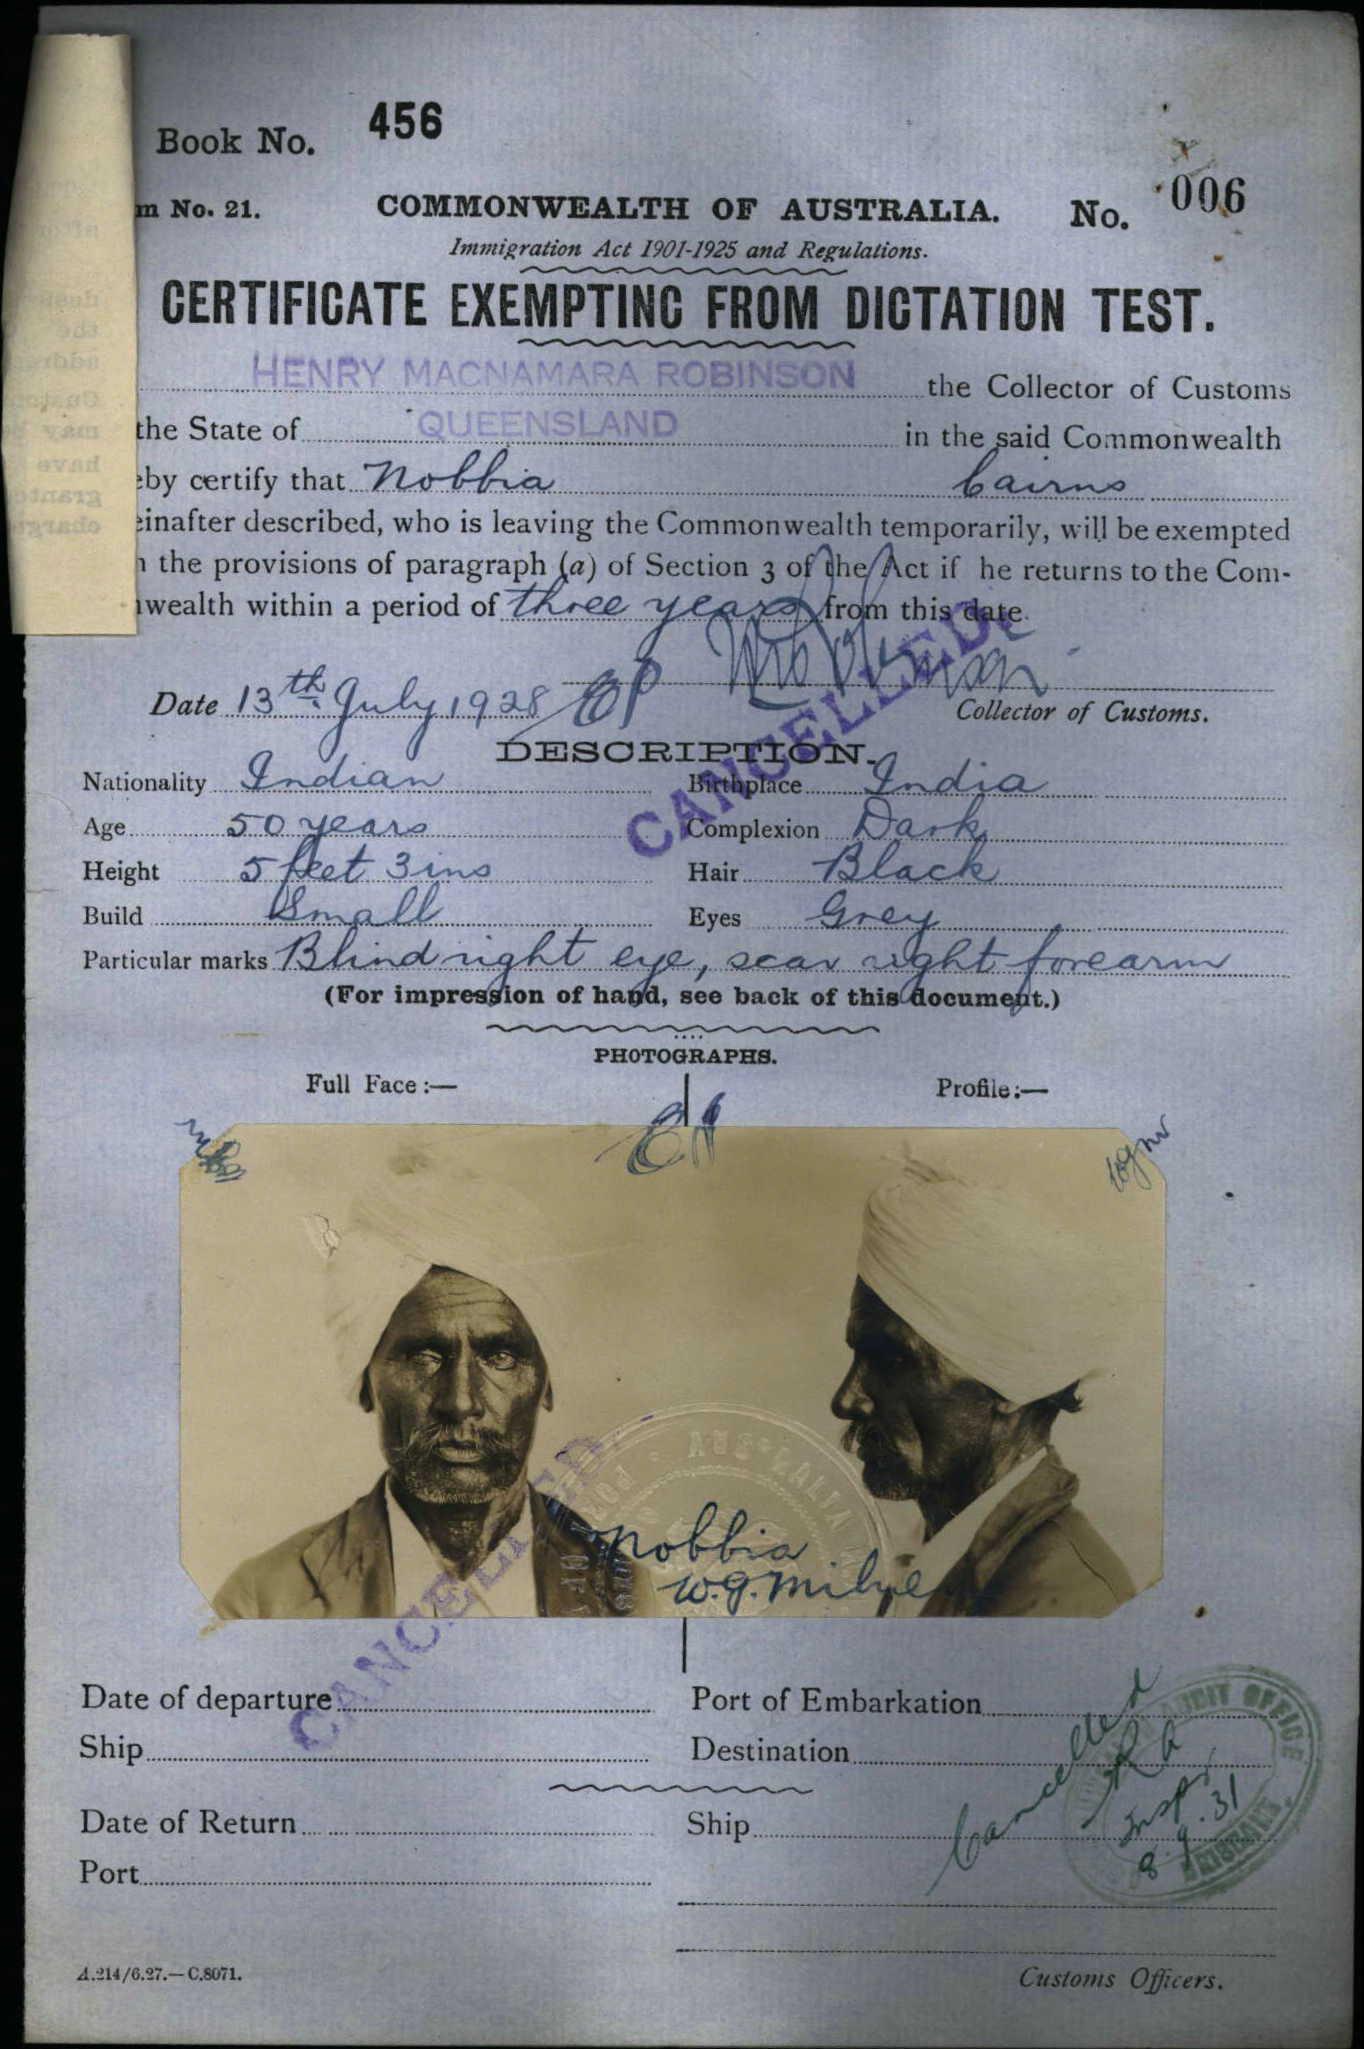 Book No. 456
m No. 21. COMMONWEALTH OF AUSTRALIA. No. 006
Immigration Act 1901-1925 and Regulations.
CERTIFICATE EXEMPTING FROM DICTATION TEST.
HENRY MACNAMARA ROBINSON the Collector of Customs
the State of QUEENSLAND in the said Commonwealth
eby certify that Nobbia Cairns
einafter described, who is leaving the Commonwealth temporarily, will be exempted
the provisions of paragraph (a) of Section 3 of the Act if he returns to the Com-
wealth within a period of three years from this date.
Date 13th July 1928
Collector of Customs.
CANCELLED.
DESCRIPTION.
Nationality Indian Birthplace India
Age 50 years Complexion Dark
Height 5 feet 3 ins Hair Black
Build Small Eyes Grey
Particular marks Blind right eye, scar right forearm
(For impression of hand, see back of this document.)
PHOTOGRAPHS.
Full Face:— Profile:—
Nobbia
W.G. Milne
CANCELLED.
Date of departure Port of Embarkation
Ship Destination
Date of Return Ship
Port
Cancelled
Inspr
8.9.31
AUDIT OFFICE
BRISBANE
A.214/6.27.—C.8071. Customs Officers.